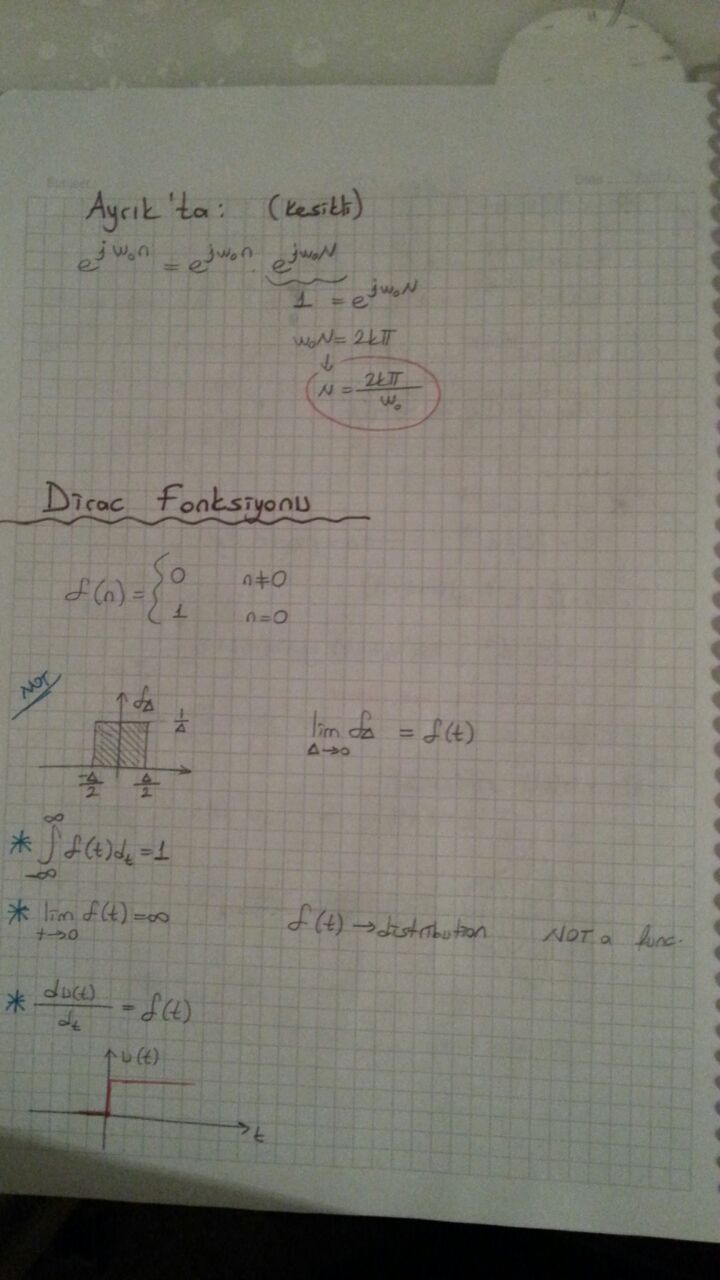 Ayrık'ta: (kesikli)
e^{jω₀n} = e^{jω₀n} · e^{jω₀N}
1 = e^{jω₀N}
ω₀N = 2kπ
↓
N = 2kπ/ω₀
Dirac Fonksiyonu
δ(n) = { 0 n≠0
1 n=0
NOT
δ_Δ
1/Δ
lim_{Δ→0} δ_Δ = δ(t)
-Δ/2 Δ/2
* ∫_{-∞}^{∞} δ(t)dₜ = 1
* lim_{t→0} δ(t) = ∞ δ(t) → distribution NOT a func.
* du(t)/dₜ = δ(t)
u(t)
t